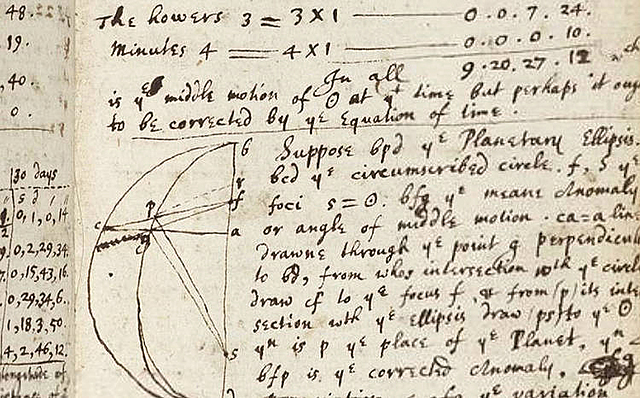 48.
19.
40.
0.
30 days
s d
0, 1, 0, 14
0, 2, 29, 34.
0, 15, 43, 16.
0, 29, 34, 6.
1, 18, 3, 50.
4, 2, 46, 12.
The howers 3 = 3 × 1 0. 0. 7. 24.
Minutes 4 = 4 × 1 0. 0. 0. 10.
In all 9. 20. 27. 12
is yᵉ middle motion of ☉ at yᵗ time but perhaps it oug
to be corrected by yᵉ Equation of time.
b
r
f
p
c
g
a
s
d
Suppose bpd yᵉ Planetary Ellipsis.
bcd yᵉ circumscribed circle. f, S yᵉ
foci s = ☉. bfg yᵉ meane Anomaly
or angle of middle motion. ca = a line
drawne through yᵉ point g perpendicul
to bd, from whos intersection wth yᵉ circle
draw cf to yᵉ focus f. & from /p/ its inter
section wth yᵉ Ellipsis draw /ps/ to yᵉ ☉
yⁿ is p yᵉ place of yᵉ Planet, yⁿ
bfp is yᵉ corrected Anomaly.
yᵉ variation